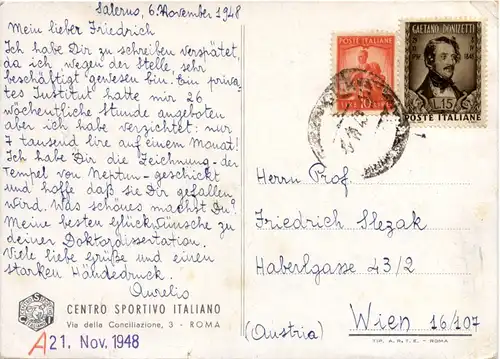 Salerno, 6. November 1948
Mein lieber Friedrich
Ich habe Dir zu schreiben verspätet,
da ich, wegen der Stelle, sehr
beschäftigt gewesen bin. Ein priva-
tes Institut hatte mir 26
wöchentliche Stunde angeboten
aber ich habe verzichtet: nur
7 tausend lire auf einem Monat!
Ich habe Dir die Zeichnung - der
Tempel von Neptun - geschickt
und hoffe daß sie Dir gefallen
wird. Was schönes machst Du?
Meine besten Glückwünsche zu
deiner Doktordissertation.
Viele liebe Grüße und einen
starken Händedruck.
Aurelio
CENTRO SPORTIVO ITALIANO
Via della Conciliazione, 3 - ROMA
A 21. Nov. 1948
POSTE ITALIANE
LIRE 10
GAETANO DONIZETTI
1848
L.15
POSTE ITALIANE
Herrn Prof.
Friedrich Slezak
Haberlgasse 43/2
Wien 16/107
(Austria)
TIP. A. R. T. E. - ROMA